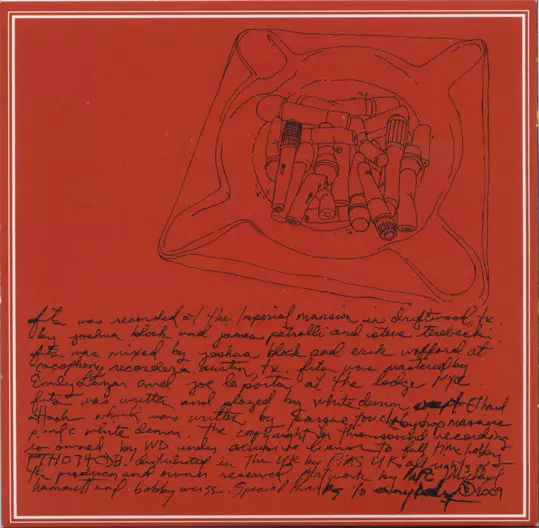 fits was recorded at the Imperial mansion in driftwood, Tx.
by joshua block and james petralli and steve terebecki
fits was mixed by joshua block and erik wofford at
cacophony recorders austin, Tx. fits was mastered by
Emily Lazar and joe laporta at the lodge NYC
fits was written and played by white denim except El hard
attack which was written by
p and c white denim. The copyright in this sound recording
is owned by WD under exclusive licence to full time hobby
FTH074CDB. distributed in the UK by PIAS UK. all rights of
the producer and owner reserved Artwork by Michael
hammett and bobby weiss. Special thanks to everybody 2009